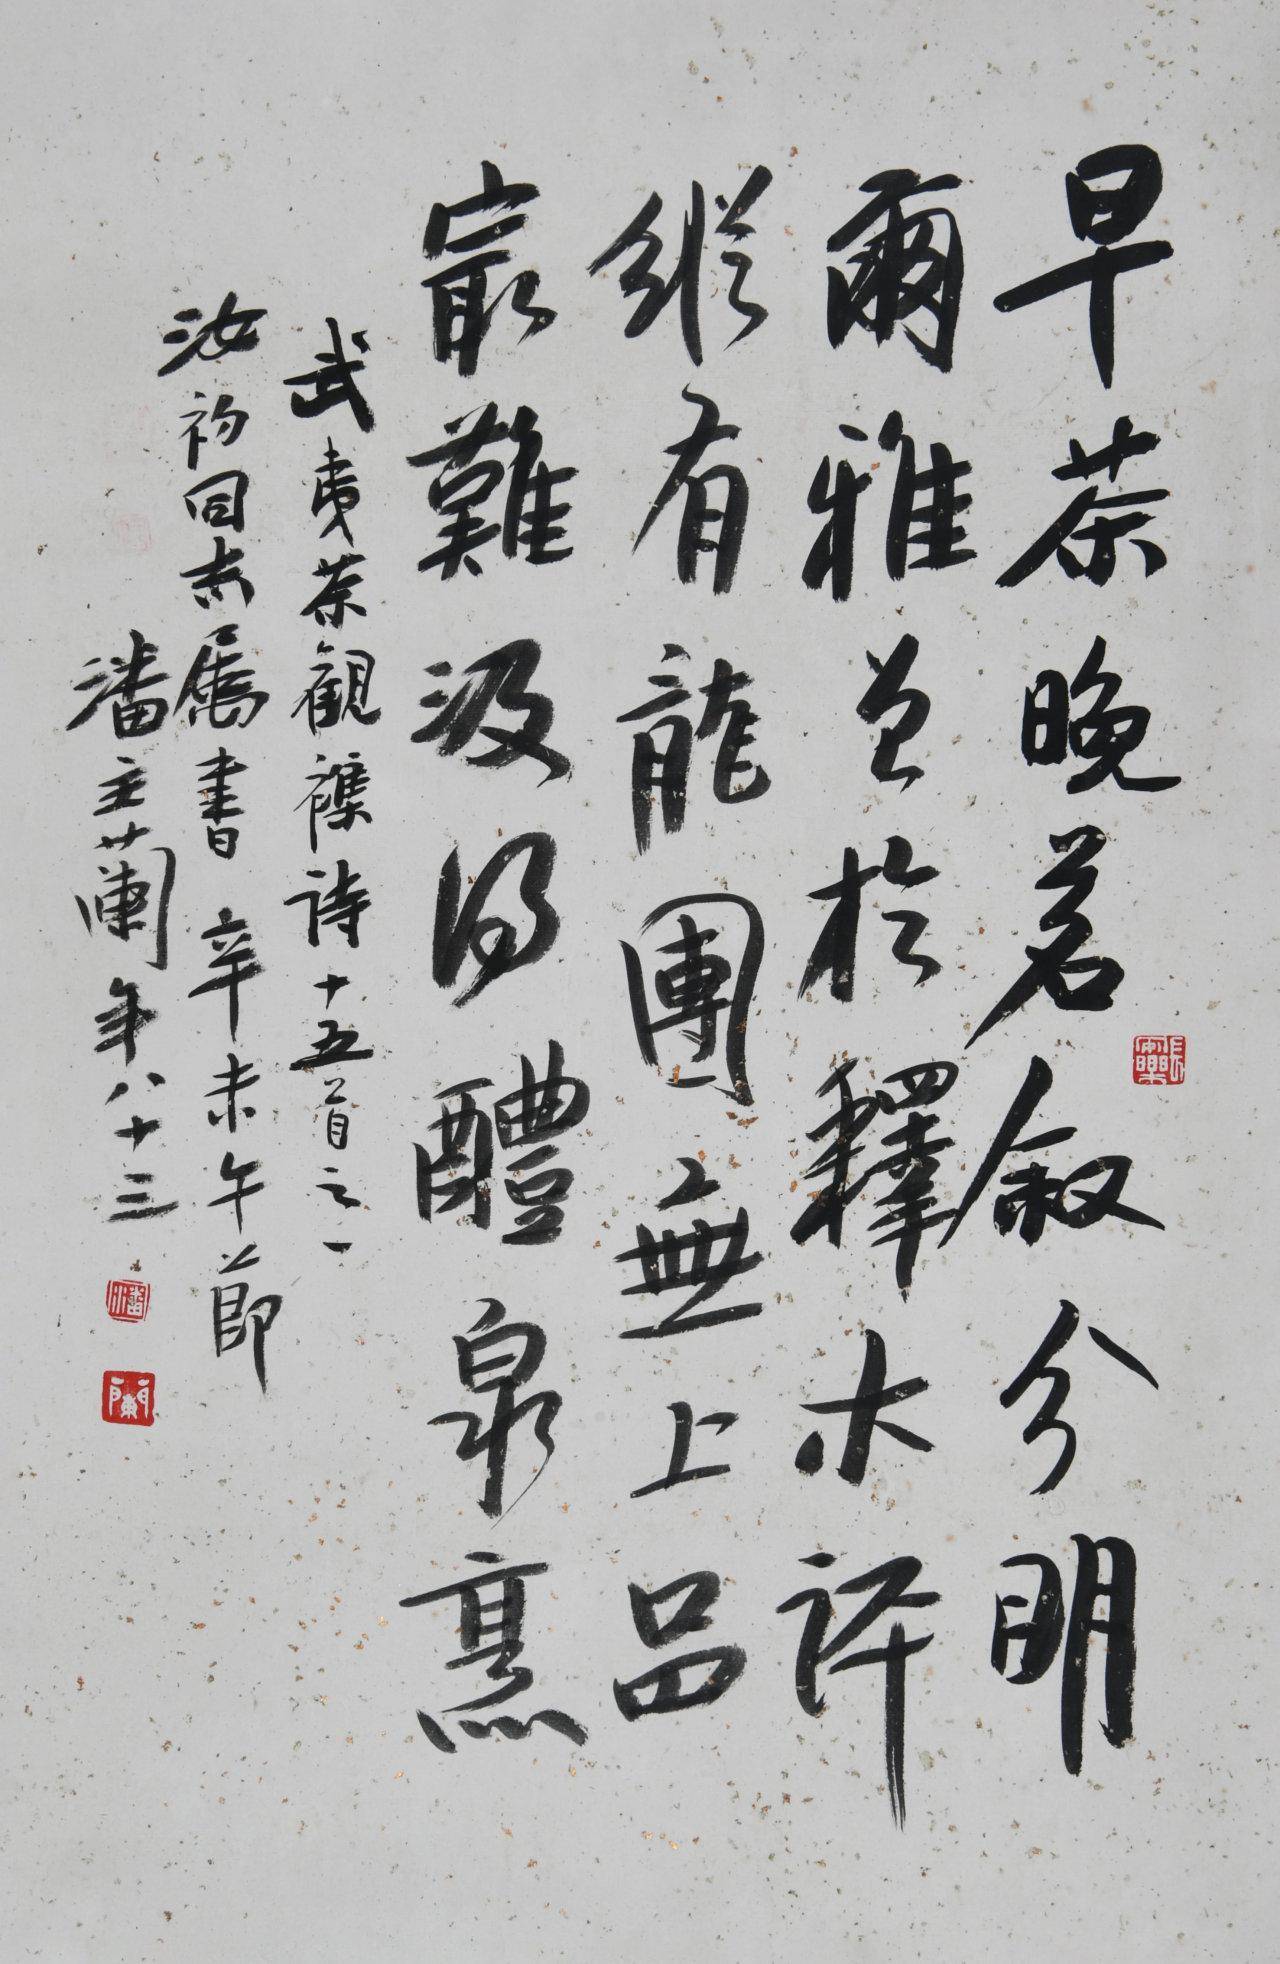 早茶晚茗叙分明
爾雅曾於釋木評
縱有龍團無上品
最難汲得醴泉烹
武夷茶觀襍詩十五首之一
汝礿同志屬書 辛未午節
潘主蘭年八十三
潘
蘭